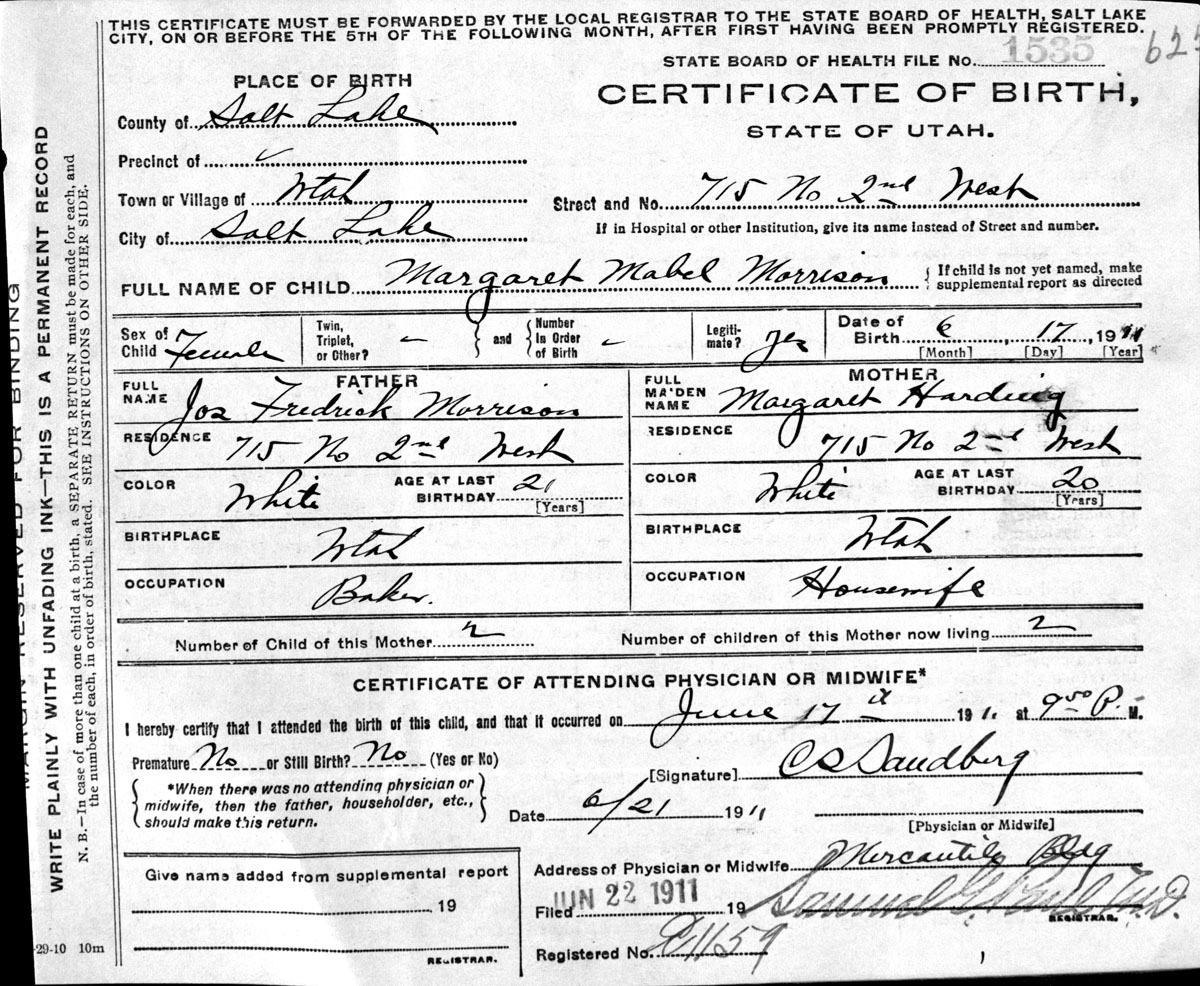 THIS CERTIFICATE MUST BE FORWARDED BY THE LOCAL REGISTRAR TO THE STATE BOARD OF HEALTH, SALT LAKE
CITY, ON OR BEFORE THE 5TH OF THE FOLLOWING MONTH, AFTER FIRST HAVING BEEN PROMPTLY REGISTERED.
STATE BOARD OF HEALTH FILE No. 1535
PLACE OF BIRTH
CERTIFICATE OF BIRTH,
STATE OF UTAH.
County of Salt Lake
Precinct of
Town or Village of Utah
Street and No. 715 No 2nd West
City of Salt Lake
If in Hospital or other Institution, give its name instead of Street and number.
FULL NAME OF CHILD Margaret Mabel Morrison
{ If child is not yet named, make
supplemental report as directed
Sex of Child Female
Twin, Triplet, or Other? – } and { Number In Order of Birth –
Legitimate? yes
Date of Birth 6, 17, 1911
[Month] [Day] [Year]
FATHER
FULL NAME Jos Fredrick Morrison
RESIDENCE 715 No 2nd West
COLOR White AGE AT LAST BIRTHDAY 21 [Years]
BIRTHPLACE Utah
OCCUPATION Baker.
MOTHER
FULL MAIDEN NAME Margaret Harding
RESIDENCE 715 No 2nd West
COLOR White AGE AT LAST BIRTHDAY 20 [Years]
BIRTHPLACE Utah
OCCUPATION Housewife
Number of Child of this Mother 2 Number of children of this Mother now living 2
CERTIFICATE OF ATTENDING PHYSICIAN OR MIDWIFE*
I hereby certify that I attended the birth of this child, and that it occurred on June 17th 1911 at 9:00 P. M.
Premature No or Still Birth? No (Yes or No)
[Signature] C S Sandberg
{ *When there was no attending physician or
midwife, then the father, householder, etc.,
should make this return. }
Date 6/21 1911
[Physician or Midwife]
Give name added from supplemental report
19
REGISTRAR.
Address of Physician or Midwife Mercantile Bldg
JUN 22 1911
Filed 19 Samuel G. Paul M.D.
REGISTRAR.
Registered No.
-29-10 10m
MARGIN RESERVED FOR BINDING
WRITE PLAINLY WITH UNFADING INK—THIS IS A PERMANENT RECORD
N. B.—In case of more than one child at a birth, a SEPARATE RETURN must be made for each, and
the number of each, in order of birth, stated. SEE INSTRUCTIONS ON OTHER SIDE.